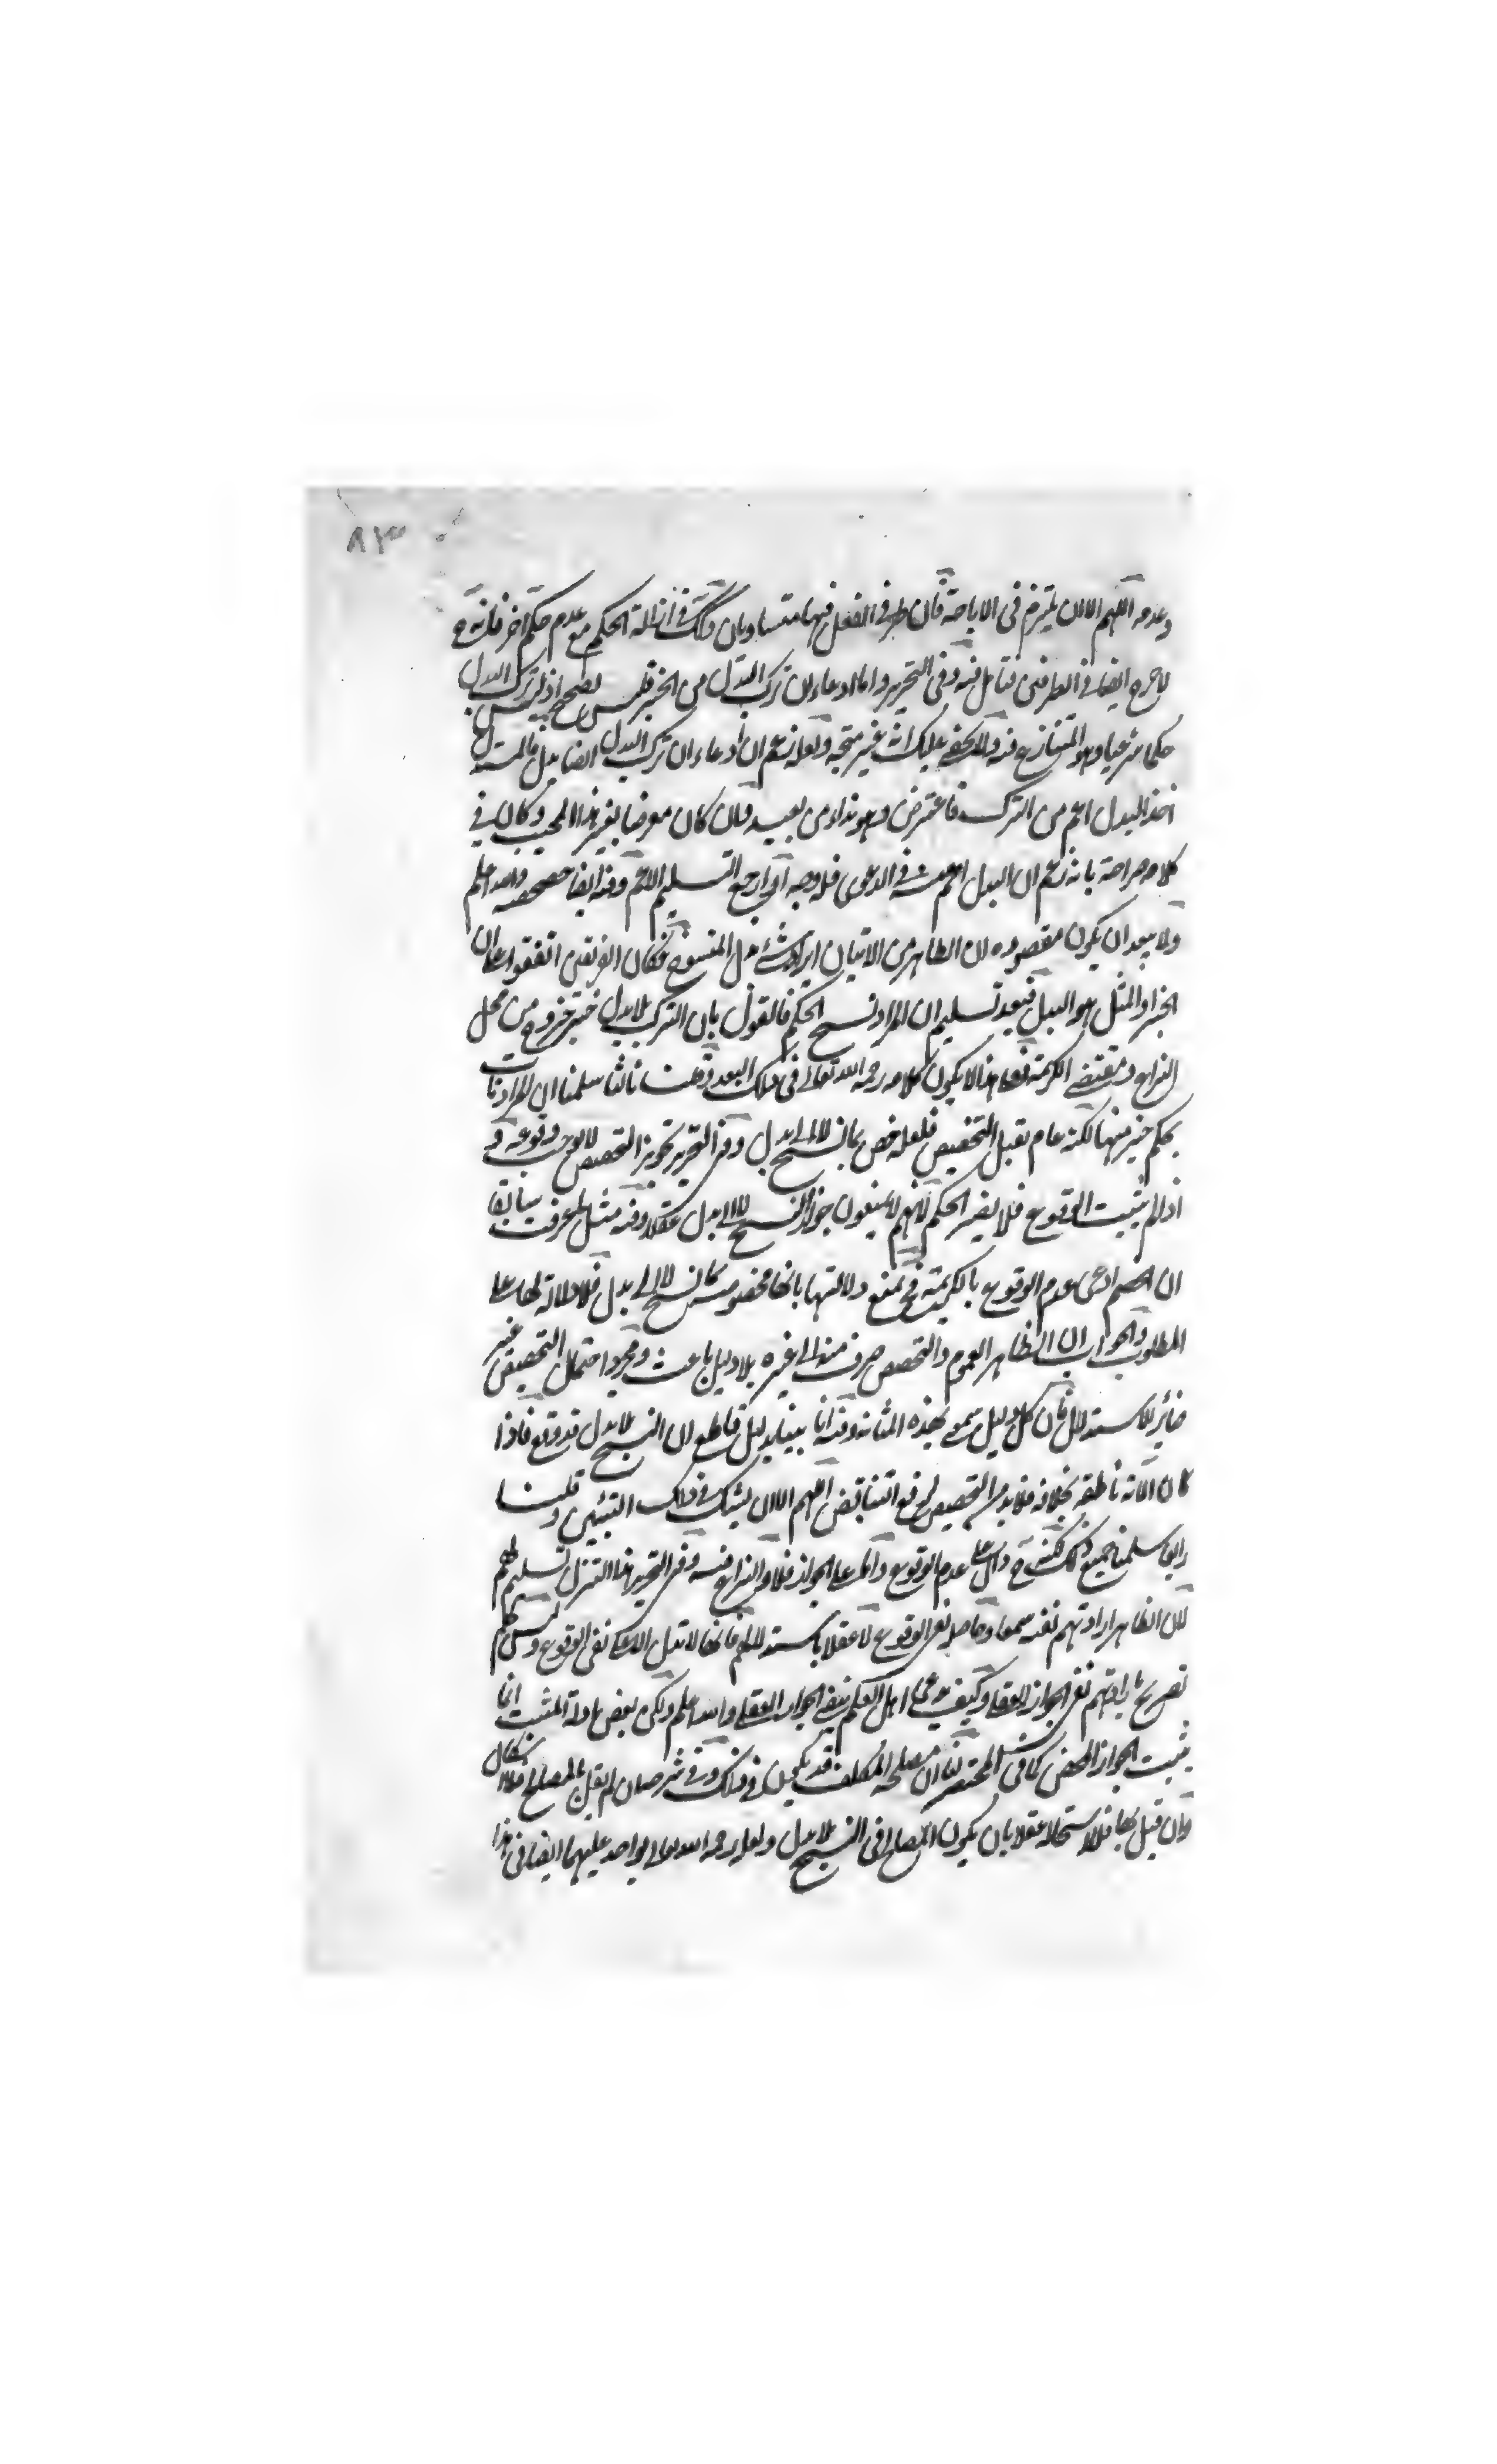 ٨٣
وعدمه اللهم الا ان يلتزم في الاباحة فان طرفي الفعل فيها متساويان وذلك في ازالة الحكم مع عدم حكم آخر فانه ح
لا حرج ايضا في الطرفين فتأمل فيه وفي التحرير واما ادعاء ان ترك البدل من الخير فليس بصحيح اذ ليس ترك البدل
حكما شرعيا وهو المتنازع فيه ولا يخفى عليك انه غير متجه ولعله زعم ان ادعاء ان ترك البدل ايضا بدل فالمستدل
اخذ البدل اعم من الترك فاعترض وهو نداء من بعيد وان كان معرضا بغير هذا المجيب وكان في
كلامه صراحة بانه زعم ان البدل اعم منه في الدعوى فله وجه او ارجع التسليم الاعم وفيه ايضا والله اعلم
ولا يبعد ان يكون مقصوده لان الظاهر من الاتيان ايراد شيء بدل المنسوخ فكان الفريقين اتفقوا على ان
الخير او المثل هو البدل فبعد تسليم ان المراد نسخ الحكم فالقول بان الترك بلا بدل خير خروج من محل
النزاع ومقتضى الكريمة فعلى هذا لا يكون كلامه رحمه الله تعالى في ذلك البعد وقلت ثالثا سلمنا ان المراد نأت
بحكم خير منها لكنه عام يقبل التخصيص فلعله خص بما نسخ لا الى بدل وفي التحرير تجويز التخصيص لا يوجب وقوعه و
اذا لم يثبت الوقوع فلا يضير الحكم لانهم لا يمنعون جواز النسخ لا الى بدل عقلا وفيه مثل ما عرفت سابقا
ان الخصم ادعى عدم الوقوع بالكريمة فح نمنع دلالتها بانها مخصوصة كما نسخ لا الى بدل فلا دلالة لها على
المطلوب والجواب ان الظاهر العموم والتخصيص صرف منه الى غيره بلا دليل باعث ومجرد احتمال التخصيص غير
ضائر للاستدلال فان كل دليل سمعي بهذه المثابة وفيه انا بينا بدليل قاطع ان النسخ بلا بدل قد وقع فاذا
كان الآية ناطقة بخلافه فلا بد من التخصيص لدفع التناقض اللهم الا ان يشك في ذلك التبيين وقلت
رابعا سلمنا جميع ذلك لكنه ح دال على عدم الوقوع والكلام على الجواز فلا النزاع فيه وفي التحرير هذا التنزل تسليم لهم
لان الظاهر ارادتهم نفيه سمعا وحاصل نفي الوقوع لا عقلا باستدلالهم فانها لا تدل الا على نفي الوقوع وليس لهم
تصريح بارادتهم نفي الجواز العقلي وكيف يدعي اهل العلم نفي الجواز العقلي والله اعلم ولكن بعض ادلة المثبت انما
يثبت الجواز المحض كما في المختصر لنا ان مصلحة المكلف قد تكون في ذلك وفي شرحه ان لم يقل بالمصالح فلا اشكال
وان قيل بها فلا استحالة عقلا بان يكون المصالح في النسخ بلا بدل ولعله رحمه الله تعالى يواخذ عليهما ايضا في هذا